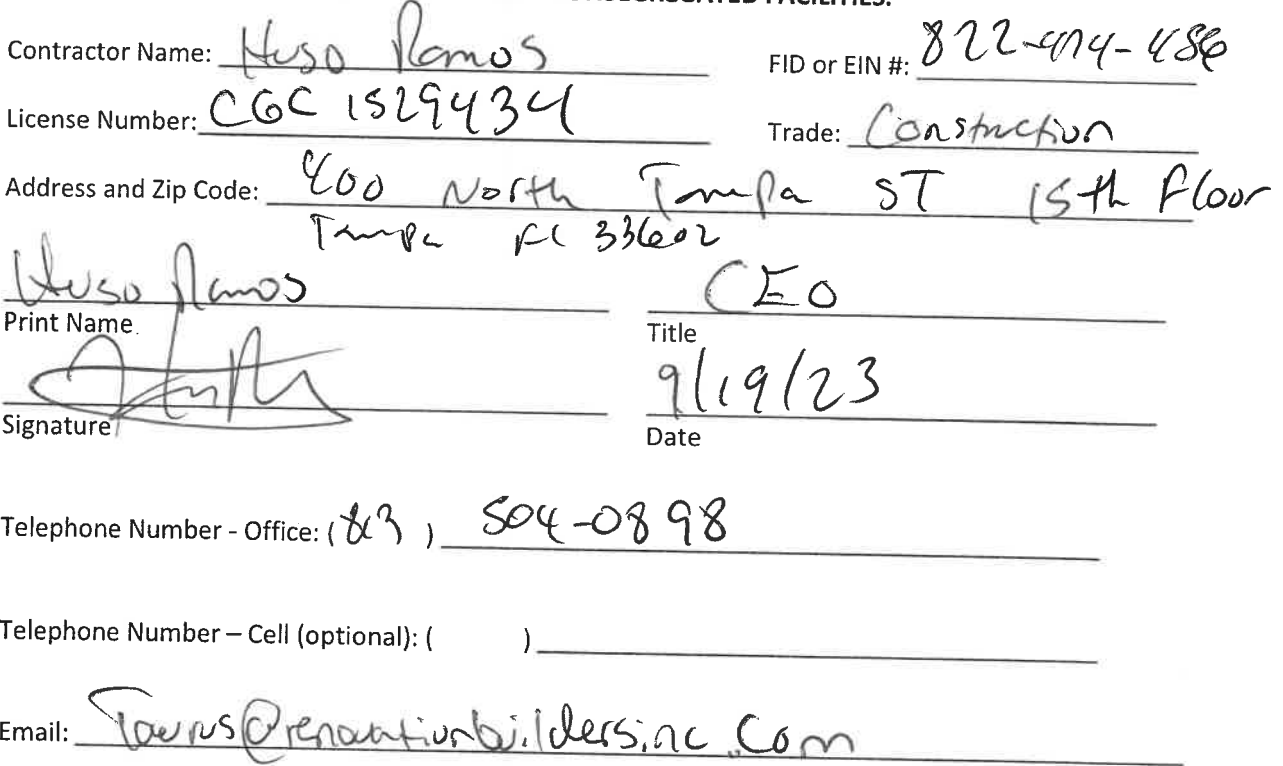 FACILITIES.
Contractor Name: Hugo Ramos FID or EIN #: 822-474-486
License Number: CGC 1529434 Trade: Construction
Address and Zip Code: 400 North Tampa ST 15th Floor
Tampa FL 33602
Hugo Ramos CEO
Print Name Title
9/19/23
Signature Date
Telephone Number - Office: (813) 504-0898
Telephone Number – Cell (optional): ( )
Email: Taurus@renovationbuildersinc.com